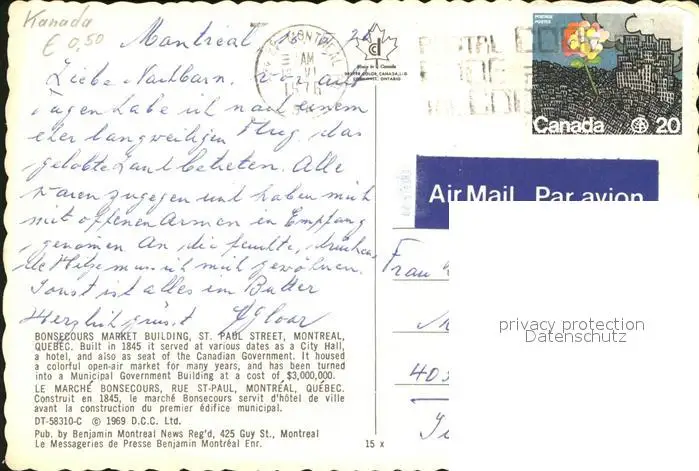 Kanada
€ 0,50
Montréal
MONTREAL
AM
VI
Made in Canada
POSTAGE POSTES
Canada 20
Air Mail Par avion
Liebe Nachbarn. vor
Tagen habe ich nach einem
eher langweiligen Flug das
gelobte Land betreten. Alle
waren zugegen und haben mich
mit offenen Armen in Empfang
genomen An die feuchte, drücken
de Hitze muss ich mich gewöhnen.
Sonst ist alles im Butter
Herzlich grüsst
Frau
privacy protection
Datenschutz
BONSECOURS MARKET BUILDING, ST. PAUL STREET, MONTREAL,
QUEBEC. Built in 1845 it served at various dates as a City Hall,
a hotel, and also as seat of the Canadian Government. It housed
a colorful open-air market for many years, and has been turned
into a Municipal Government Building at a cost of $3,000,000.
LE MARCHÉ BONSECOURS, RUE ST-PAUL, MONTRÉAL, QUÉBEC.
Construit en 1845, le marché Bonsecours servit d'hôtel de ville
avant la construction du premier édifice municipal.
DT-58310-C © 1969 D.C.C. Ltd.
Pub. by Benjamin Montreal News Reg'd, 425 Guy St., Montreal
Le Messageries de Presse Benjamin Montréal Enr. 15 x